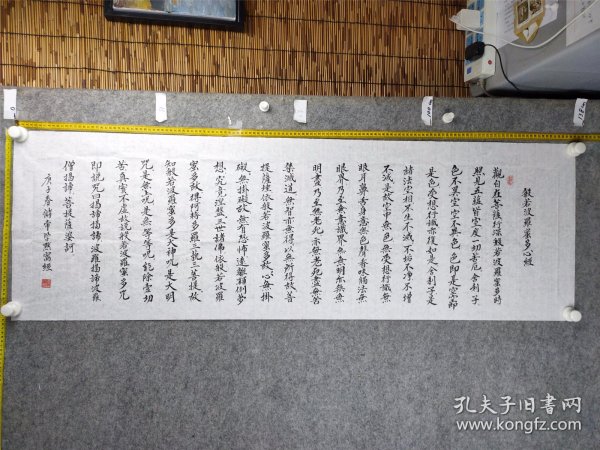 般若波羅蜜多心經
觀自在菩薩行深般若波羅蜜多時
照見五蘊皆空度一切苦厄舍利子
色不異空空不異色色即是空空即
是色受想行識亦復如是舍利子是
諸法空相不生不滅不垢不淨不增
不減是故空中無色無受想行識無
眼耳鼻舌身意無色聲香味觸法無
眼界乃至無意識界無無明亦無無
明盡乃至無老死亦無老死盡無苦
集滅道無智亦無得以無所得故菩
提薩埵依般若波羅蜜多故心無掛
礙無掛礙故無有恐怖遠離顛倒夢
想究竟涅槃三世諸佛依般若波羅
蜜多故得阿耨多羅三藐三菩提故
知般若波羅蜜多是大神咒是大明
咒是無上咒是無等等咒能除一切
苦真實不虛故說般若波羅蜜多咒
即說咒曰揭諦揭諦波羅揭諦波羅
僧揭諦菩提薩婆訶
庚子春
孔夫子旧书网
www.kongfz.com